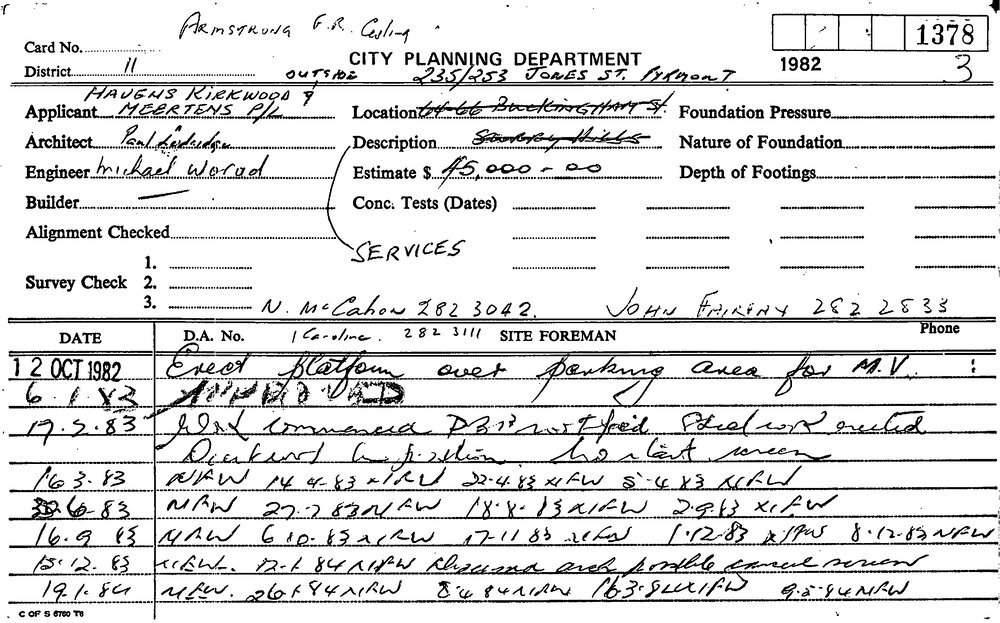 ARMSTRONG G.R. Ceiling
Card No.
1378
CITY PLANNING DEPARTMENT
1982
3
District 11
OUTSIDE 235/253 JONES ST. PYRMONT
HAVENS KIRKWOOD &
Applicant MEERTENS P/L
Location 64-66 BUCKINGHAM St.
Foundation Pressure
Architect Paul
Description SURRY HILLS
Nature of Foundation
Engineer Michael Worad
Estimate $ 45,000-00
Depth of Footings
Builder
Conc. Tests (Dates)
Alignment Checked
SERVICES
1.
Survey Check 2.
3.
N. McCahon 282 3042.
JOHN FAIRFAX 282 2833
DATE
D.A. No.
1 Caroline 282 3111
SITE FOREMAN
Phone
12 OCT 1982 Erect platform over parking area for M.V.
6.1.83 APPROVED
commenced not Steel work erected
screen
16 3.83 NFW 14 4-83 NFW 22-4.83 NFW 5-4 83 NFW
6-83 NFW 27-7 83 NFW 18-8-83 NFW 2.9.83 NFW
16.9 83 NFW 6 10-83 NFW 17-11 83 NFW 1-12-83 NFW 8-12-83 NFW
15-12.83 NFW. 12-1-84 NFW Discussed arch possible cancel screen
19.1.84 NFW. 26-1-84 NFW 8-4 84 NFW 16-3-84 NFW 9-5-84 NFW
C OF S 6760 T6